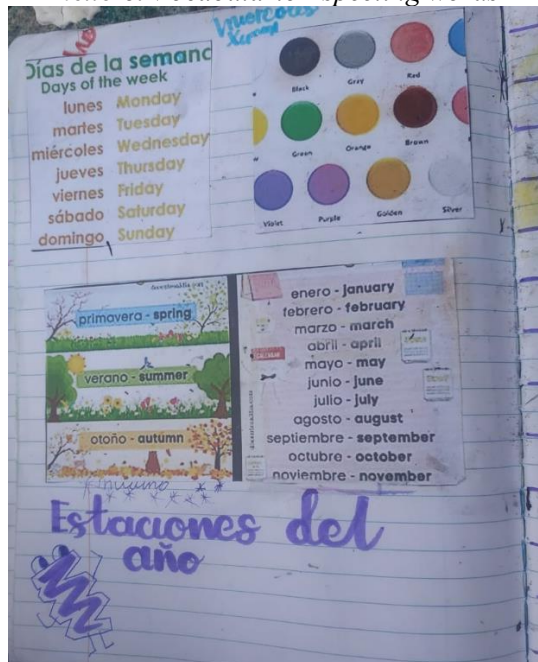 Días de la semana
Days of the week
lunes Monday
martes Tuesday
miércoles Wednesday
jueves Thursday
viernes Friday
sábado Saturday
domingo Sunday
Black Gray Red
Green Orange Brown
Violet Purple Golden Silver
primavera - spring
verano - summer
otoño - autumn
enero - january
febrero - february
marzo - march
abril - april
mayo - may
junio - june
julio - july
agosto - august
septiembre - september
octubre - october
noviembre - november
Estaciones del
año